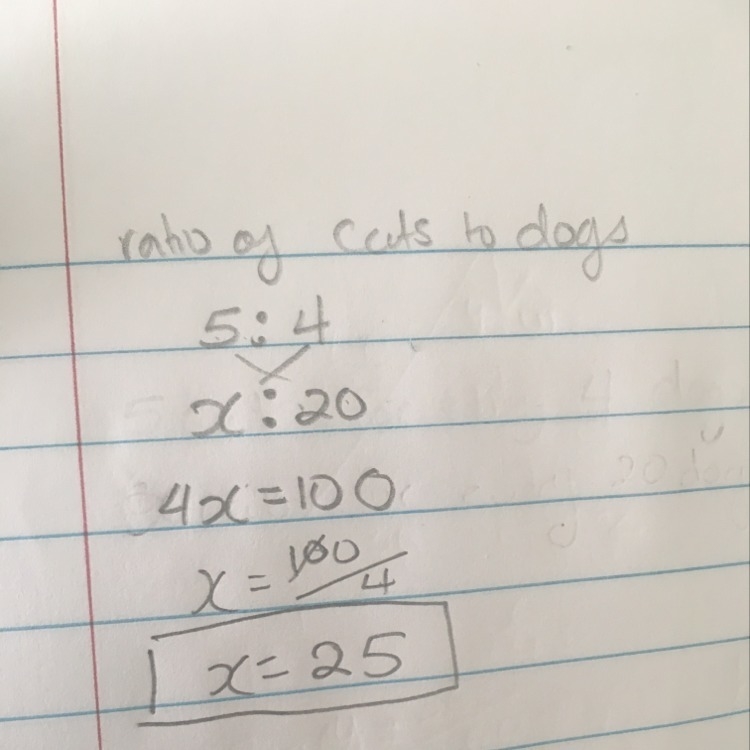 ratio of cats to dogs
5:4
x:20
4x=100
x=100/4
x=25